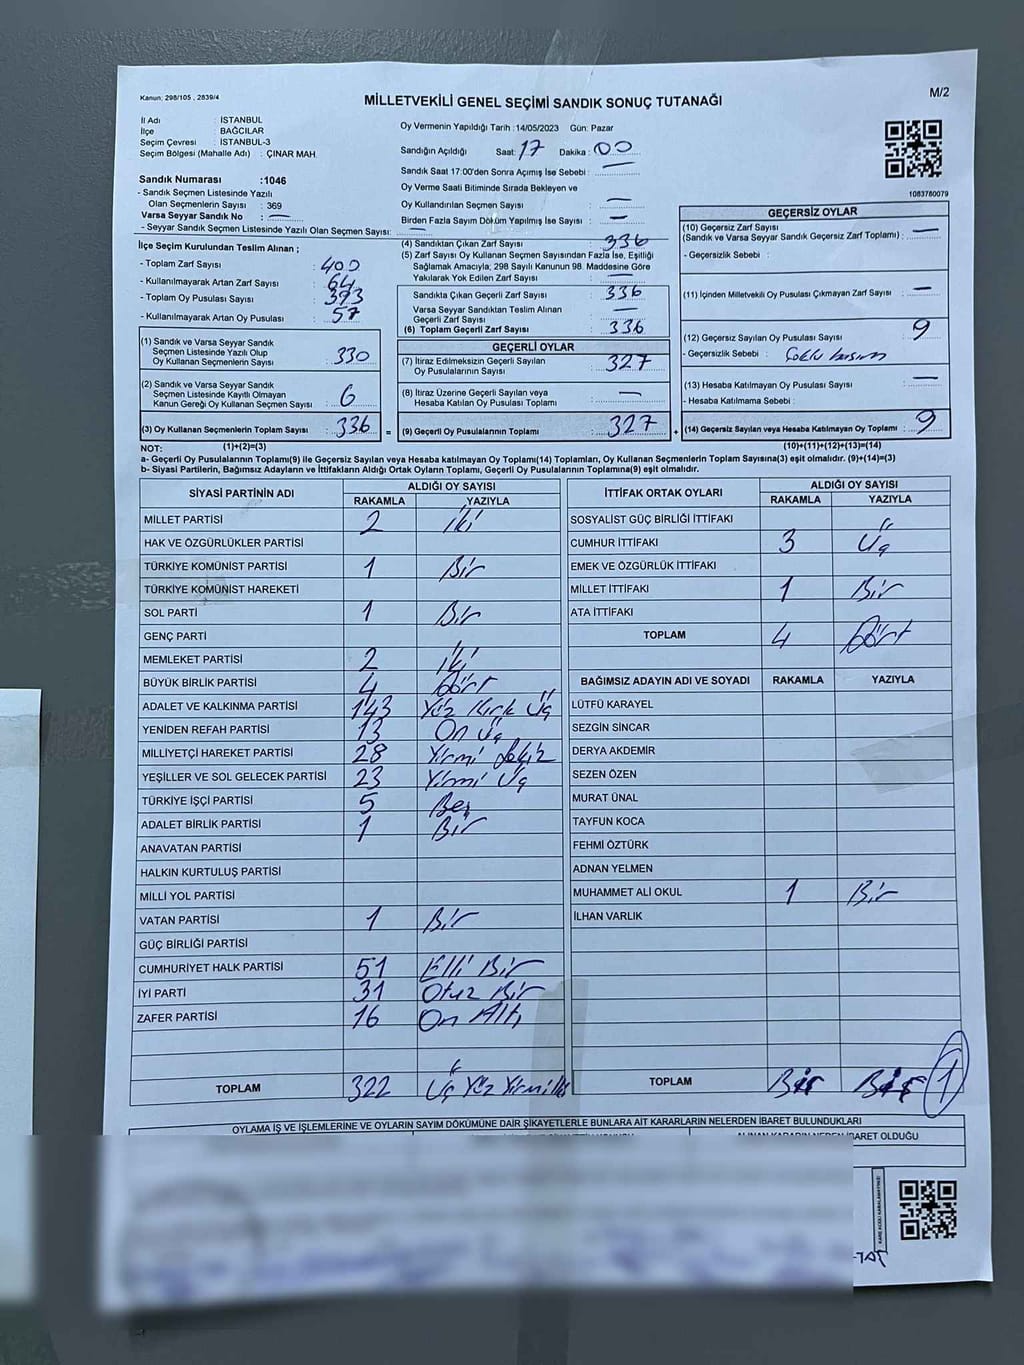 Kanun: 298/105 , 2839/4
M/2
MİLLETVEKİLİ GENEL SEÇİMİ SANDIK SONUÇ TUTANAĞI
İl Adı : İSTANBUL
İlçe : BAĞCILAR
Seçim Çevresi : İSTANBUL-3
Seçim Bölgesi (Mahalle Adı) : ÇINAR MAH.
Oy Vermenin Yapıldığı Tarih :14/05/2023 Gün: Pazar
Sandığın Açıldığı Saat: 17 Dakika : 00
Sandık Saat 17:00'den Sonra Açımış İse Sebebi : —
Oy Verme Saati Bitiminde Sırada Bekleyen ve
Oy Kullandırılan Seçmen Sayısı : —
Birden Fazla Sayım Döküm Yapılmış İse Sayısı : —
1083780079
Sandık Numarası :1046
- Sandık Seçmen Listesinde Yazılı
Olan Seçmenlerin Sayısı : 369
Varsa Seyyar Sandık No : —
- Seyyar Sandık Seçmen Listesinde Yazılı Olan Seçmen Sayısı: —
İlçe Seçim Kurulundan Teslim Alınan ;
- Toplam Zarf Sayısı : 400
- Kullanılmayarak Artan Zarf Sayısı : 64
- Toplam Oy Pusulası Sayısı : 393
- Kullanılmayarak Artan Oy Pusulası : 57
(1) Sandık ve Varsa Seyyar Sandık
Seçmen Listesinde Yazılı Olup
Oy Kullanan Seçmenlerin Sayısı : 330
(2) Sandık ve Varsa Seyyar Sandık
Seçmen Listesinde Kayıtlı Olmayan
Kanun Gereği Oy Kullanan Seçmen Sayısı : 6
(3) Oy Kullanan Seçmenlerin Toplam Sayısı : 336 =
(4) Sandıktan Çıkan Zarf Sayısı : 336
(5) Zarf Sayısı Oy Kullanan Seçmen Sayısından Fazla İse, Eşitliği
Sağlamak Amacıyla; 298 Sayılı Kanunun 98. Maddesine Göre
Yakılarak Yok Edilen Zarf Sayısı : —
Sandıkta Çıkan Geçerli Zarf Sayısı : 336
Varsa Seyyar Sandıktan Teslim Alınan
Geçerli Zarf Sayısı : —
(6) Toplam Geçerli Zarf Sayısı : 336
GEÇERLİ OYLAR
(7) İtiraz Edilmeksizin Geçerli Sayılan
Oy Pusulalarının Sayısı : 327
(8) İtiraz Üzerine Geçerli Sayılan veya
Hesaba Katılan Oy Pusulası Toplamı : —
(9) Geçerli Oy Pusulalarının Toplamı : 327 +
GEÇERSİZ OYLAR
(10) Geçersiz Zarf Sayısı
(Sandık ve Varsa Seyyar Sandık Geçersiz Zarf Toplamı) : —
- Geçersizlik Sebebi :
(11) İçinden Milletvekili Oy Pusulası Çıkmayan Zarf Sayısı : —
(12) Geçersiz Sayılan Oy Pusulası Sayısı : 9
- Geçersizlik Sebebi : Çoklu basım
(13) Hesaba Katılmayan Oy Pusulası Sayısı : —
- Hesaba Katılmama Sebebi :
(14) Geçersiz Sayılan veya Hesaba Katılmayan Oy Toplamı : 9
NOT: (1)+(2)=(3) (10)+(11)+(12)+(13)=(14)
a- Geçerli Oy Pusulalarının Toplamı(9) ile Geçersiz Sayılan veya Hesaba katılmayan Oy Toplamı(14) Toplamları, Oy Kullanan Seçmenlerin Toplam Sayısına(3) eşit olmalıdır. (9)+(14)=(3)
b- Siyasi Partilerin, Bağımsız Adayların ve İttifakların Aldığı Ortak Oyların Toplamı, Geçerli Oy Pusulalarının Toplamına(9) eşit olmalıdır.
SİYASİ PARTİNİN ADI ALDIĞI OY SAYISI
RAKAMLA YAZIYLA
MİLLET PARTİSİ 2 iki
HAK VE ÖZGÜRLÜKLER PARTİSİ
TÜRKİYE KOMÜNİST PARTİSİ 1 Bir
TÜRKİYE KOMÜNİST HAREKETİ
SOL PARTİ 1 Bir
GENÇ PARTİ
MEMLEKET PARTİSİ 2 iki
BÜYÜK BİRLİK PARTİSİ 4 Dört
ADALET VE KALKINMA PARTİSİ 143 Yüz Kırk Üç
YENİDEN REFAH PARTİSİ 13 On Üç
MİLLİYETÇİ HAREKET PARTİSİ 28 Yirmi Sekiz
YEŞİLLER VE SOL GELECEK PARTİSİ 23 Yirmi Üç
TÜRKİYE İŞÇİ PARTİSİ 5 Beş
ADALET BİRLİK PARTİSİ 1 Bir
ANAVATAN PARTİSİ
HALKIN KURTULUŞ PARTİSİ
MİLLİ YOL PARTİSİ
VATAN PARTİSİ 1 Bir
GÜÇ BİRLİĞİ PARTİSİ
CUMHURİYET HALK PARTİSİ 51 Elli Bir
İYİ PARTİ 31 Otuz Bir
ZAFER PARTİSİ 16 On Altı
TOPLAM 322 Üç Yüz
İTTİFAK ORTAK OYLARI ALDIĞI OY SAYISI
RAKAMLA YAZIYLA
SOSYALİST GÜÇ BİRLİĞİ İTTİFAKI
CUMHUR İTTİFAKI 3 Üç
EMEK VE ÖZGÜRLÜK İTTİFAKI
MİLLET İTTİFAKI 1 Bir
ATA İTTİFAKI
TOPLAM 4 Dört
BAĞIMSIZ ADAYIN ADI VE SOYADI RAKAMLA YAZIYLA
LÜTFÜ KARAYEL
SEZGİN SİNCAR
DERYA AKDEMİR
SEZEN ÖZEN
MURAT ÜNAL
TAYFUN KOCA
FEHMİ ÖZTÜRK
ADNAN YELMEN
MUHAMMET ALİ OKUL 1 Bir
İLHAN VARLIK
TOPLAM Bir Bir 1
OYLAMA İŞ VE İŞLEMLERİNE VE OYLARIN SAYIM DÖKÜMÜNE DAİR ŞİKAYETLERLE BUNLARA AİT KARARLARIN NELERDEN İBARET BULUNDUKLARI
ALINAN KARARIN NEDEN İBARET OLDUĞU